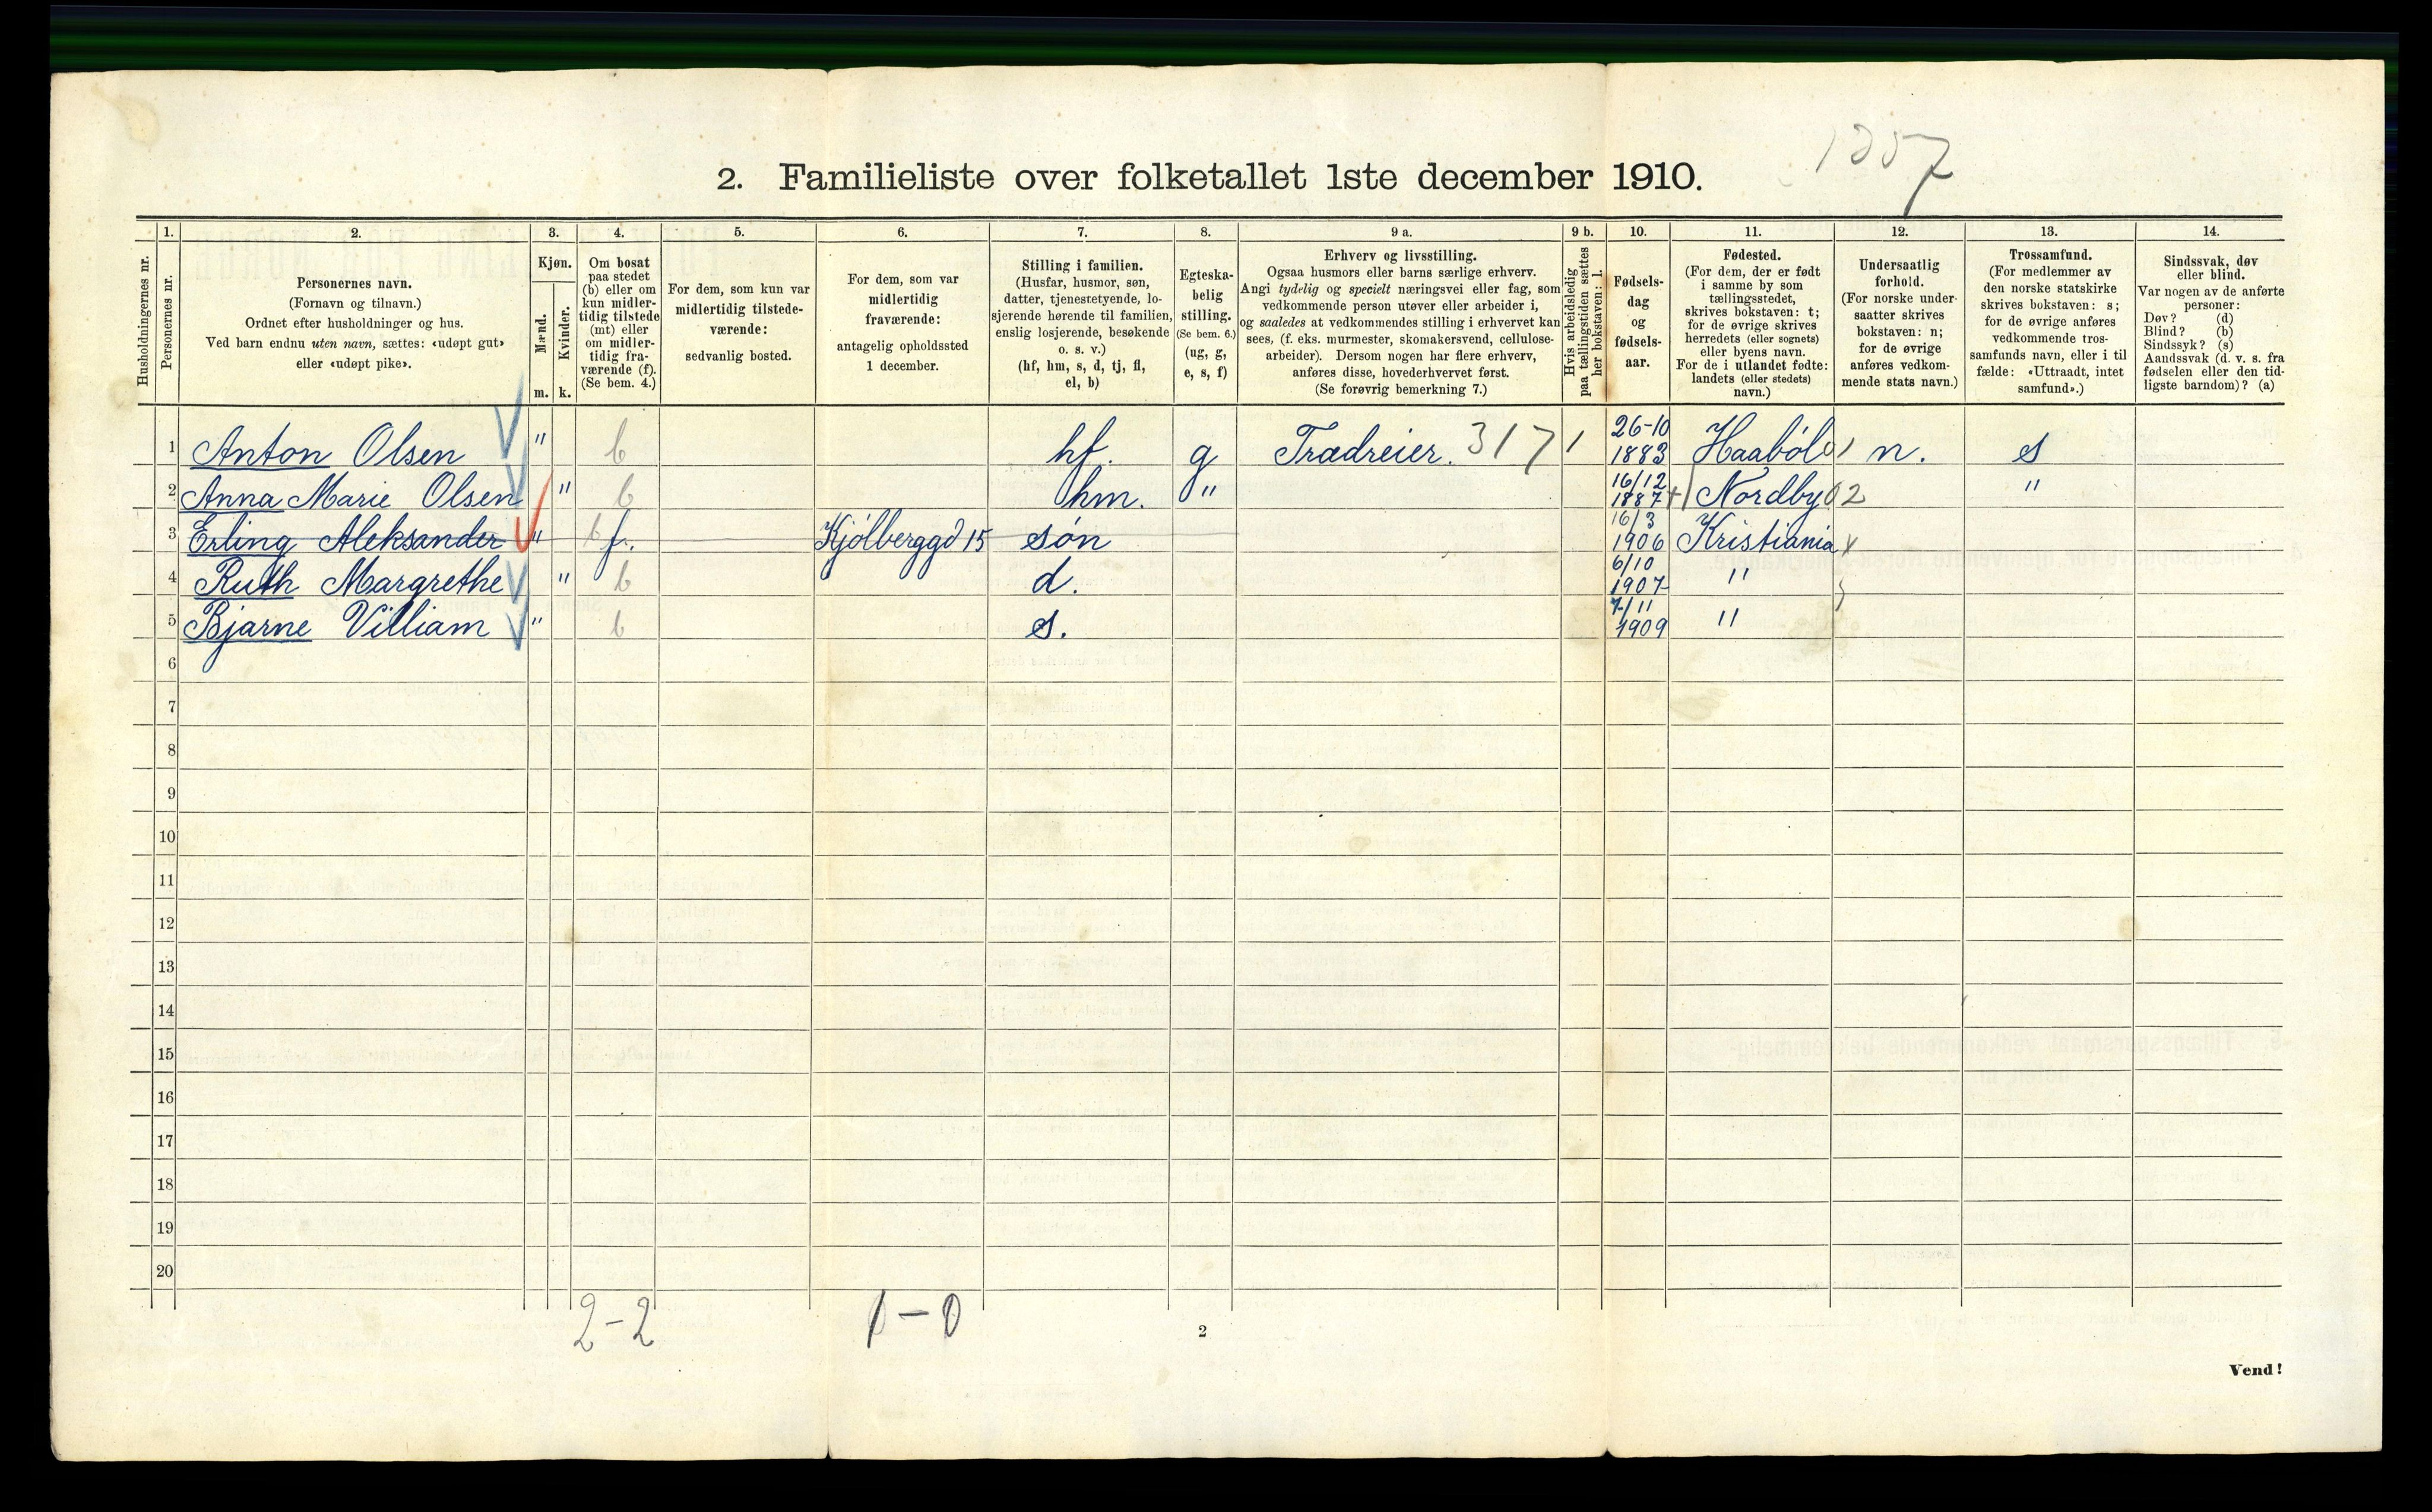 1257
2. Familieliste over folketallet 1ste december 1910.
Husholdningernes nr.
1.
Personernes nr.
2.
Personernes navn.
(Fornavn og tilnavn.)
Ordnet efter husholdninger og hus.
Ved barn endnu uten navn, sættes: «udøpt gut»
eller «udøpt pike».
3.
Kjøn.
Mænd.
m.
Kvinder.
k.
4.
Om bosat
paa stedet
(b) eller om
kun midler-
tidig tilstede
(mt) eller
om midler-
tidig fra-
værende (f).
(Se bem. 4.)
5.
For dem, som kun var
midlertidig tilstede-
værende:
sedvanlig bosted.
6.
For dem, som var
midlertidig
fraværende:
antagelig opholdssted
1 december.
7.
Stilling i familien.
(Husfar, husmor, søn,
datter, tjenestetyende, lo-
sjerende hørende til familien,
enslig losjerende, besøkende
o. s. v.)
(hf, hm, s, d, tj, fl,
el, b)
8.
Egteska-
belig
stilling.
(Se bem. 6.)
(ug, g,
e, s, f)
9 a.
Erhverv og livsstilling.
Ogsaa husmors eller barns særlige erhverv.
Angi tydelig og specielt næringsvei eller fag, som
vedkommende person utøver eller arbeider i,
og saaledes at vedkommendes stilling i erhvervet kan
sees, (f. eks. murmester, skomakersvend, cellulose-
arbeider). Dersom nogen har flere erhverv,
anføres disse, hovederhvervet først.
(Se forøvrig bemerkning 7.)
9 b.
Hvis arbeidsledig
paa tællingstiden sættes
her bokstaven: l.
10.
Fødsels-
dag
og
fødsels-
aar.
11.
Fødested.
(For dem, der er født
i samme by som
tællingsstedet,
skrives bokstaven: t;
for de øvrige skrives
herredets (eller sognets)
eller byens navn.
For de i utlandet fødte:
landets (eller stedets)
navn.)
12.
Undersaatlig
forhold.
(For norske under-
saatter skrives
bokstaven: n;
for de øvrige
anføres vedkom-
mende stats navn.)
13.
Trossamfund.
(For medlemmer av
den norske statskirke
skrives bokstaven: s;
for de øvrige anføres
vedkommende tros-
samfunds navn, eller i til
fælde: «Uttraadt, intet
samfund».)
14.
Sindssvak, døv
eller blind.
Var nogen av de anførte
personer:
Døv? (d)
Blind? (b)
Sindssyk? (s)
Aandssvak (d. v. s. fra
fødselen eller den tid-
ligste barndom)? (a)
1 Anton Olsen " b hf. g Trædreier. 317 1 26-10 1883 Haaböl 01 n. s
2 Anna Marie Olsen " b hm. " 16/12 1887 Nordby 02 "
3 Erling Aleksander " b f. Kjölberggd 15 søn 16/3 1906 Kristiania
4 Ruth Margrethe " b d. 6/10 1907 "
5 Bjarne Villiam " b s. 7/11 1909 "
6
7
8
9
10
11
12
13
14
15
16
17
18
19
20
2-2 1-0
2
Vend!